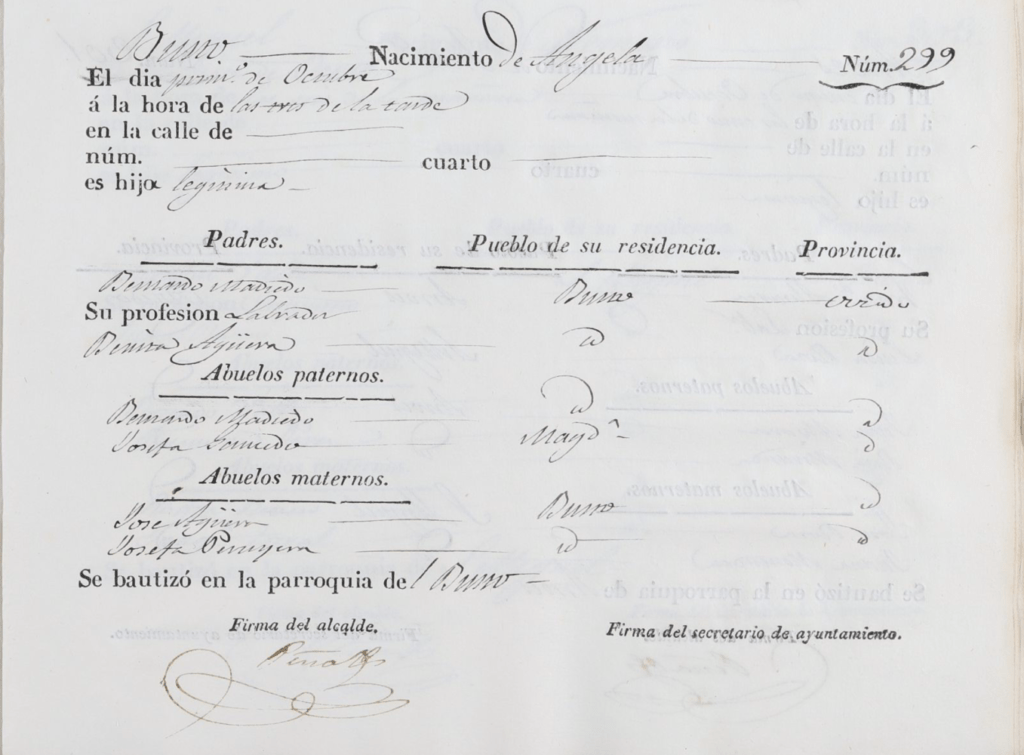 Busto Nacimiento De Angela Núm. 299
El dia prim.º de Octubre
á la hora de las tres de la tarde
en la calle de
núm. cuarto
es hija legitima
Padres. Pueblo de su residencia. Provincia.
Bernardo Madiedo Busto oviedo
Su profesion Labrador
Benita Agüera id id
Abuelos paternos.
Bernardo Madiedo id id
Josefa id
Abuelos maternos.
Jose Agüera Busto id
Josefa id id
Se bautizó en la parroquia del Busto
Firma del alcalde. Firma del secretario de ayuntamiento.